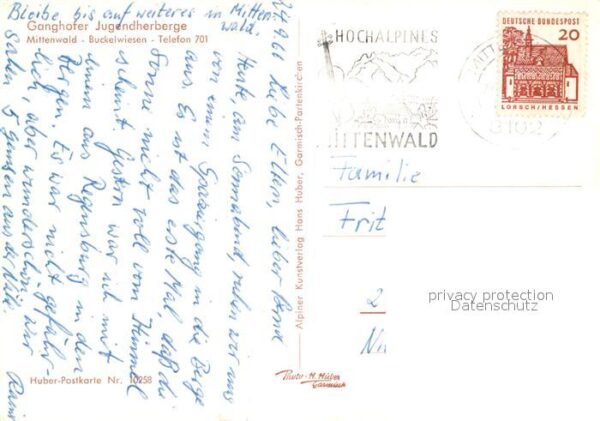 Bleibe, bis auf weiteres in Mitten-
wald.
Ganghofer Jugendherberge
Mittenwald - Buckelwiesen - Telefon 701
Liebe Eltern, lieber
Heute, am Sonnabend, ruhen wir uns
von einem in die Berge
aus. Es ist das erste Mal, daß die
Sonne nicht voll vom Himmel
scheint. Gestern war ich mit
einem aus Regensburg in den
Bergen. Es war nicht gefähr-
lich, aber wunderschön. Wir
sahen 5 Gemsen aus der Nähe.
Huber-Postkarte Nr. 10258
Alpiner Kunstverlag Hans Huber, Garmisch-Partenkirchen
HOCHALPINES
MITTENWALD
DEUTSCHE BUNDESPOST
20
LORSCH/HESSEN
8102
Familie
Frit
2
privacy protection
Datenschutz
Photo-H. Huber
Garmisch